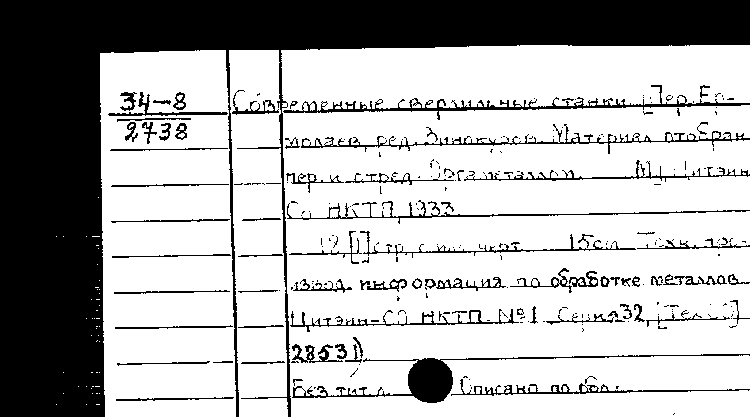 34-8
2738
Современные сверлильные станки [Пер. Ер-
молаев, ред. Винокуров. Материал отобран
пер. и отред. Оргаметаллом. М., Цитэин
Со НКТП, 1933.
12, [1] стр., с илл., черт. 15см Техн. про-
извод. информация по обработке металлов
Цитэин-СО НКТП. №1 Серия 32,
2853)
Без тит. л. Описано по обл.